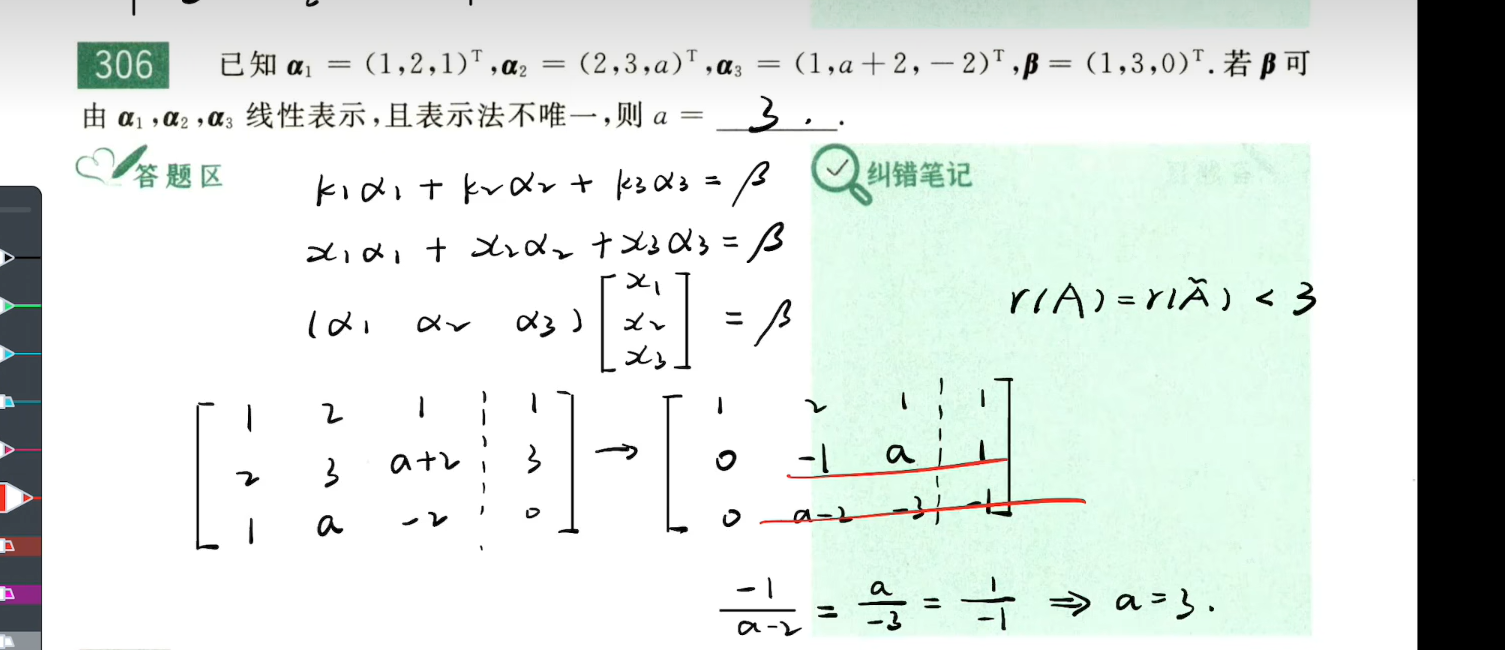 306 已知 α₁ = (1,2,1)ᵀ,α₂ = (2,3,a)ᵀ,α₃ = (1,a+2,-2)ᵀ,β = (1,3,0)ᵀ.若 β 可
由 α₁,α₂,α₃ 线性表示,且表示法不唯一,则 a = 3 . .
答题区
纠错笔记
k₁α₁ + k₂α₂ + k₃α₃ = β
x₁α₁ + x₂α₂ + x₃α₃ = β
(α₁ α₂ α₃) [x₁ x₂ x₃] = β
r(A) = r(Ã) < 3
[ 1 2 1 ¦ 1 ] → [ 1 2 1 ¦ 1 ]
[ 2 3 a+2 ¦ 3 ] [ 0 -1 a ¦ 1 ]
[ 1 a -2 ¦ 0 ] [ 0 a-2 -3 ¦ -1 ]
-1/(a-2) = a/-3 = 1/-1 ⇒ a=3.